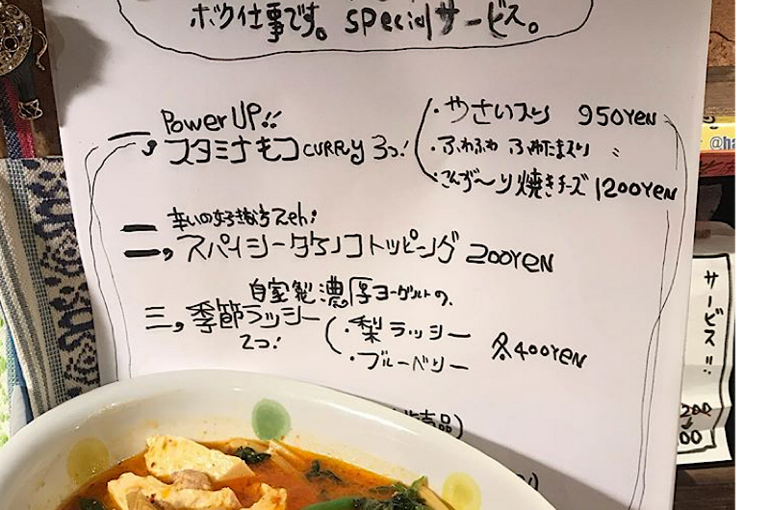 ボク仕事です。specialサービス。
Power UP!!
一、スタミナキーコCURRY 3つ!
・やさい入り 950YEN
・ふわふわ ふわたま入り 〃
・こんず〜り焼きチーズ 1200YEN
辛いの好きな方 Zeh!
二、スパイシータケノコトッピング 200YEN
自家製濃厚ヨーグルトの、
三、季節ラッシー 2つ!
・梨ラッシー
・ブルーベリー
各400YEN
サービス!!
200
00
品)